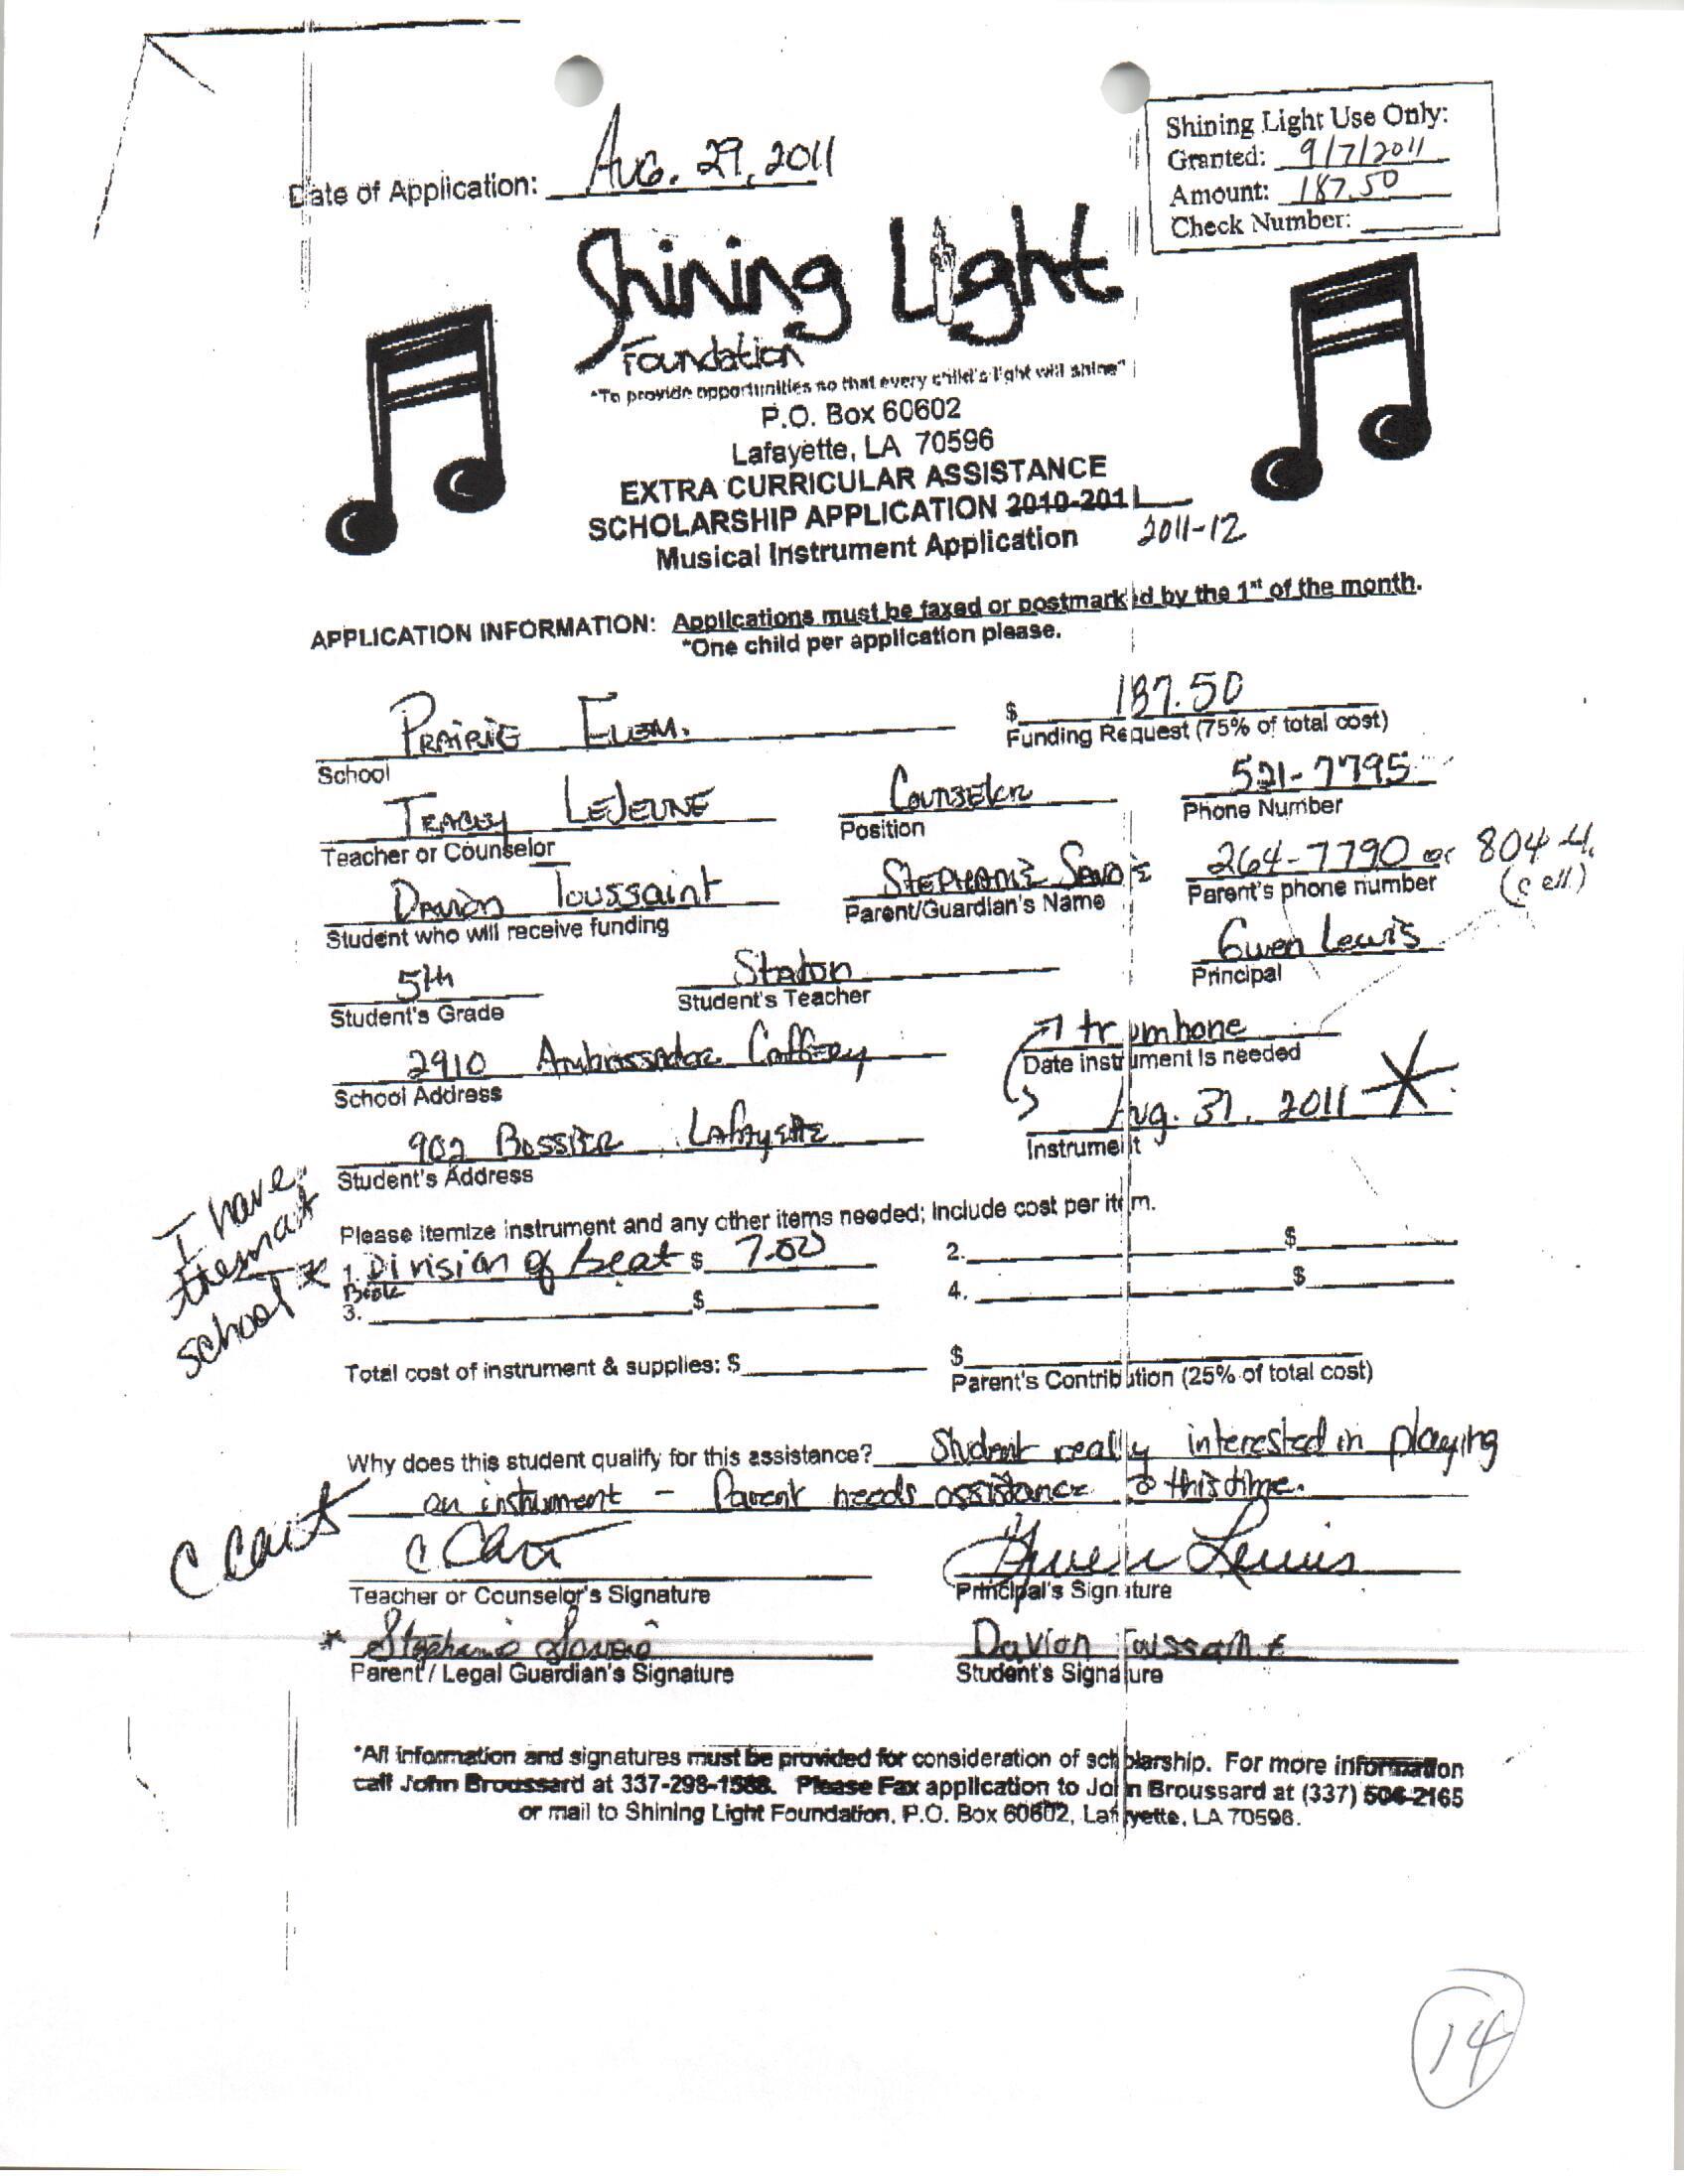 Shining Light Use Only:
Granted: 9/7/2011
Amount: 187.50
Check Number:
Date of Application: Aug. 29, 2011
Shining Light
Foundation
"To provide opportunities so that every child's light will shine"
P.O. Box 60602
Lafayette, LA 70596
EXTRA CURRICULAR ASSISTANCE
SCHOLARSHIP APPLICATION 2010-2011
2011-12
Musical Instrument Application
APPLICATION INFORMATION: Applications must be faxed or postmarked by the 1st of the month.
*One child per application please.
Prairie Elem. $ 187.50
School Funding Request (75% of total cost)
Tracey LeJeune Counselor 521-7795
Teacher or Counselor Position Phone Number
Davion Toussaint Stephanie Savoie 264-7790 or 804-
(cell)
Student who will receive funding Parent/Guardian's Name Parent's phone number
5th Staton Gwen Lewis
Student's Grade Student's Teacher Principal
2910 Ambassador Caffery trombone
School Address Date instrument is needed
902 Bossier Lafayette Aug. 31, 2011
Student's Address Instrument
I have
them at
school
Please itemize instrument and any other items needed; include cost per item.
1. Division of Beat $ 7.00 2. $
Book
3. $ 4. $
Total cost of instrument & supplies: $ $
Parent's Contribution (25% of total cost)
Why does this student qualify for this assistance? Student really interested in playing
an instrument - Parent needs assistance @ this time.
Gwen Lewis
Teacher or Counselor's Signature Principal's Signature
* Stephanie Savoie
Parent / Legal Guardian's Signature Student's Signature
*All information and signatures must be provided for consideration of scholarship. For more information
call John Broussard at 337-298-1588. Please Fax application to John Broussard at (337) 506-2165
or mail to Shining Light Foundation, P.O. Box 60602, Lafayette, LA 70596.
14